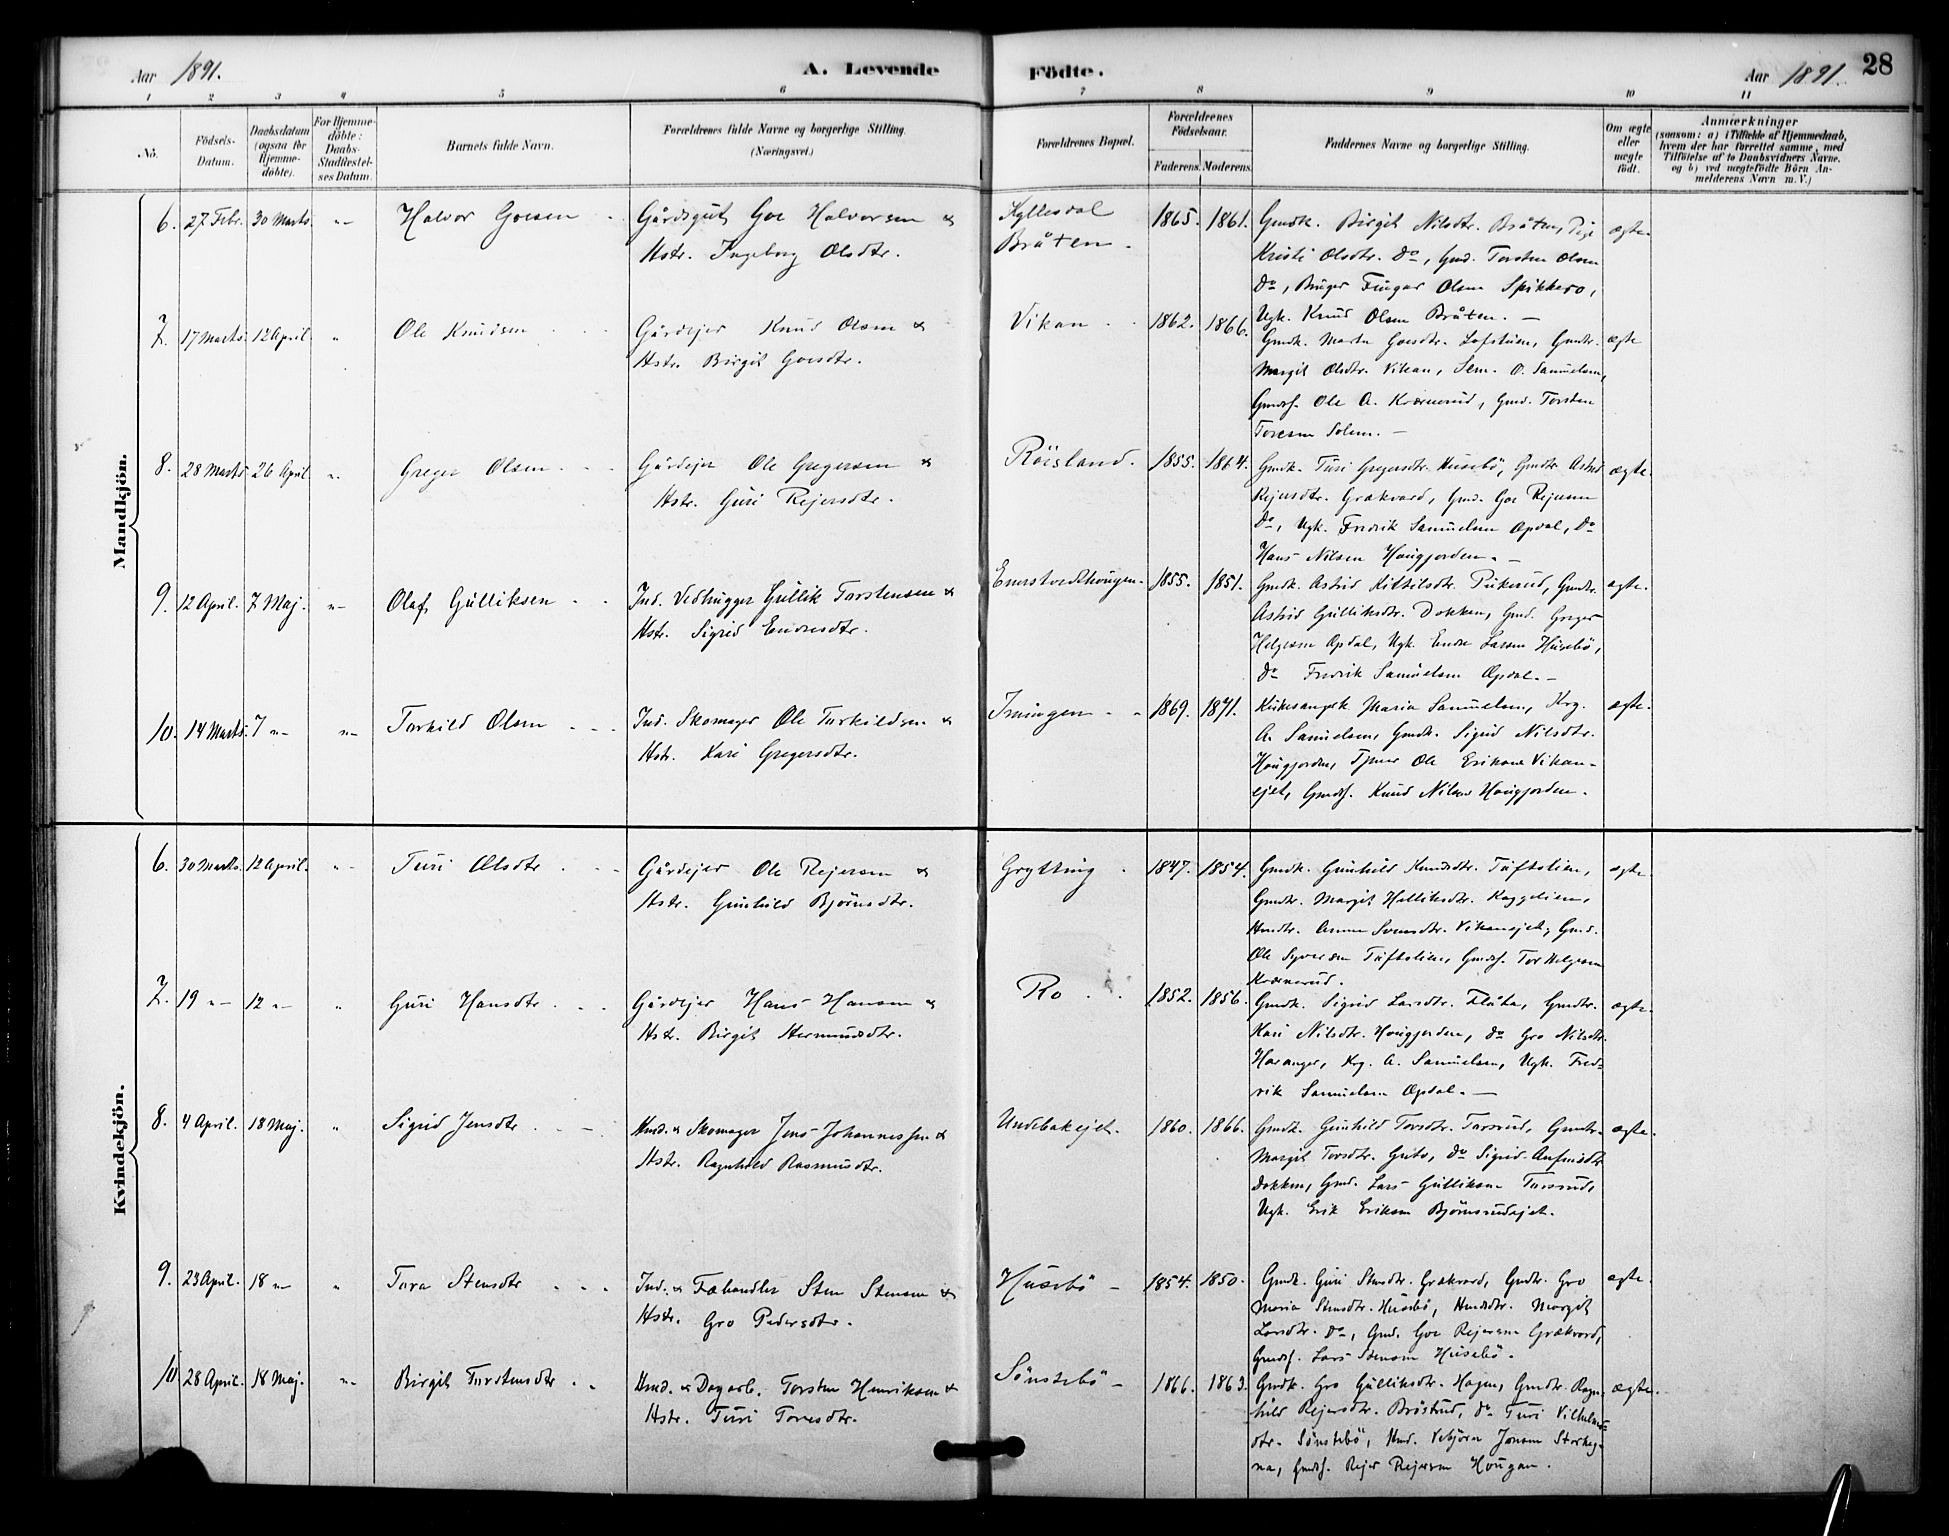 Aar 1891.
A. Levende
Födte.
Aar 1891.
28
1 2 3 4 5 6 7 8 9 10 11
No.
Födsels-Datum.
Daabsdatum (ogsaa for Hjemme-döbte).
For Hjemme-döbte: Daabs-Stadfæstel-ses Datum.
Barnets fulde Navn.
Forældrenes fulde Navne og borgerlige Stilling. (Næringsvei.)
Forældrenes Bopæl.
Forældrenes Födselsaar.
Faderens. Moderens.
Faddernes Navne og borgerlige Stilling.
Om ægte eller uægte födt.
Anmærkninger
(saasom: a) i Tilfælde af Hjemmedaab, hvem der har forrettet samme, med Tilföielse af to Daabsvidners Navne. og b) ved uægtefödte Börn An-melderens Navn m. V.)
Mandkjön.
6. 27 Febr. 30 Marts. "- Halvor Goesen Gårdsgut Goe Halvorsen &
Hstr. Ingeborg Olsdtr.
Kyllesdal
Bråten.
1865. 1861. Gmdk. Birgit Nilsdtr. Bråten, Pige
Kristi Olsdtr. Do, Gmd. Torsten Olsen
Do, Bruger Fingar Olsen Spikkero,
Ugk. Knud Olsen Bråten. -
ægte
7. 17 Marts. 12 April. " Ole Knudsen Gårdejer Knud Olsen &
Hstr. Birgit Goesdtr.
Vikan
1862. 1866. Gmdk. Marta Goesdtr. Lofstuen, Gmdtr.
Margit Olsdtr. Vikan, Sem. O. Samuelsen,
Gmds. Ole A. Kværnrud, Gmd. Torsten
Toresen Solem. -
ægte
8. 28 Marts 26 April "- Greger Olsen Gårdejer Ole Gregersen &
Hstr. Guri Rejersdtr.
Röisland.
1855. 1864. Gmdk. Turi Gregersdtr. Husebö, Gmdtr. Astrid
Rejersdtr. Grækvard, Gmd. Goe Rejersen
Do, Ugk. Fredrik Samuelsen Opdal, Do
Hans Nilsen Hougjorden. -
ægte
9. 12 April. 7 Maj. "- Olaf Gulliksen Ind. Vedhugger Gullik Torstensen &
Hstr. Sigrid Endresdtr.
1855. 1851. Gmdk. Astrid Kittilsdtr. Pukerud, Gmdtr.
Astrid Gulliksdtr. Dokken, Gmd. Greger
Helgesen Opdal, Ugk. Endre Larsen Husebö,
Do Fredrik Samuelsen Opdal. -
ægte.
10. 14 Marts. 7 "- "- Torkild Olsen Ind. Skomager Ole Torkildsen &
Hstr. Kari Gregersdtr.
Imingen
1869. 1871. Kirkesangerk. Maria Samuelsen, Krg.
A. Samuelsen, Gmdk. Sigrid Nilsdtr.
Hougjorden, Tjener Ole Eriksen Vikan-
ejet, Gmds. Knud Nilsen Hougjorden.
ægte.
Kvindekjön.
6. 30 Marts. 12 April. "- Turi Olsdtr Gårdejer Ole Rejersen &
Hstr. Gunhild Björnsdtr.
Grytting
1847. 1854. Gmdk. Gunhild Knudsdtr. Tuftelien,
Gmdtr. Margit Helliksdtr. Kaggelien,
Hmdtr. Anne Svensdtr. Vikanejet, Gmd.
Ole Syversen Tuftelien, Gmds. Tor Helgesen
Kværnerud.
ægte.
7. 19 "- 12 "- " Guri Hansdtr Gårdejer Hans Hansen &
Hstr. Birgit Hermundsdtr.
Ro
1852. 1856. Gmdk. Sigrid Larsdtr. Flåta, Gmdtr.
Kari Nilsdtr. Hougjorden, Do Gro Nilsdtr.
Haranger, Krg. A. Samuelsen, Ugk. Fred-
rik Samuelsen Opdal. -
ægte.
8. 4 April. 18 Maj. " Sigrid Jensdtr Hmd. & Skomager Jens Johannessen &
Hstr. Ragnhild Rasmusdtr.
Undebakejet.
1860. 1866. Gmdk. Gunhild Torsdtr. Tarsrud, Gmdtr.
Margit Torsdtr. Do Sigrid
Dokken, Gmd. Lars Gulliksen Tarsrud,
Ugk. Erik Eriksen Björnsrudejet.
ægte.
9. 23 April. 18 "- " Tora Stensdtr Ind. & Fæhandler Sten Stensen &
Hstr. Gro Pedersdtr.
Husebö
1854. 1850. Gmdk. Guri Stensdtr. Grækvard, Gmdtr. Gro
Maria Stensdtr. Husebö, Hmdtr. Margit
Larsdtr. Do, Gmd. Goe Rejersen Grækvard,
Gmds. Lars Stensen Husebö.
ægte.
10 28 April. 18 Maj. "- Birgit Torstensdtr Hmd. & Dagarb. Torsten Henriksen &
Hstr. Turi Toresdtr.
Sönstebö
1866. 1863. Gmdk. Gro Gulliksdtr. Hagen, Gmdtr. Ragn-
hild Rejersdtr. Bröstrud, Do Turi Vilhelms-
dtr. Sönstebö, Hmd. Vebjörn Jonsen
Gmds. Rejer Rejersen Hougan.
ægte.